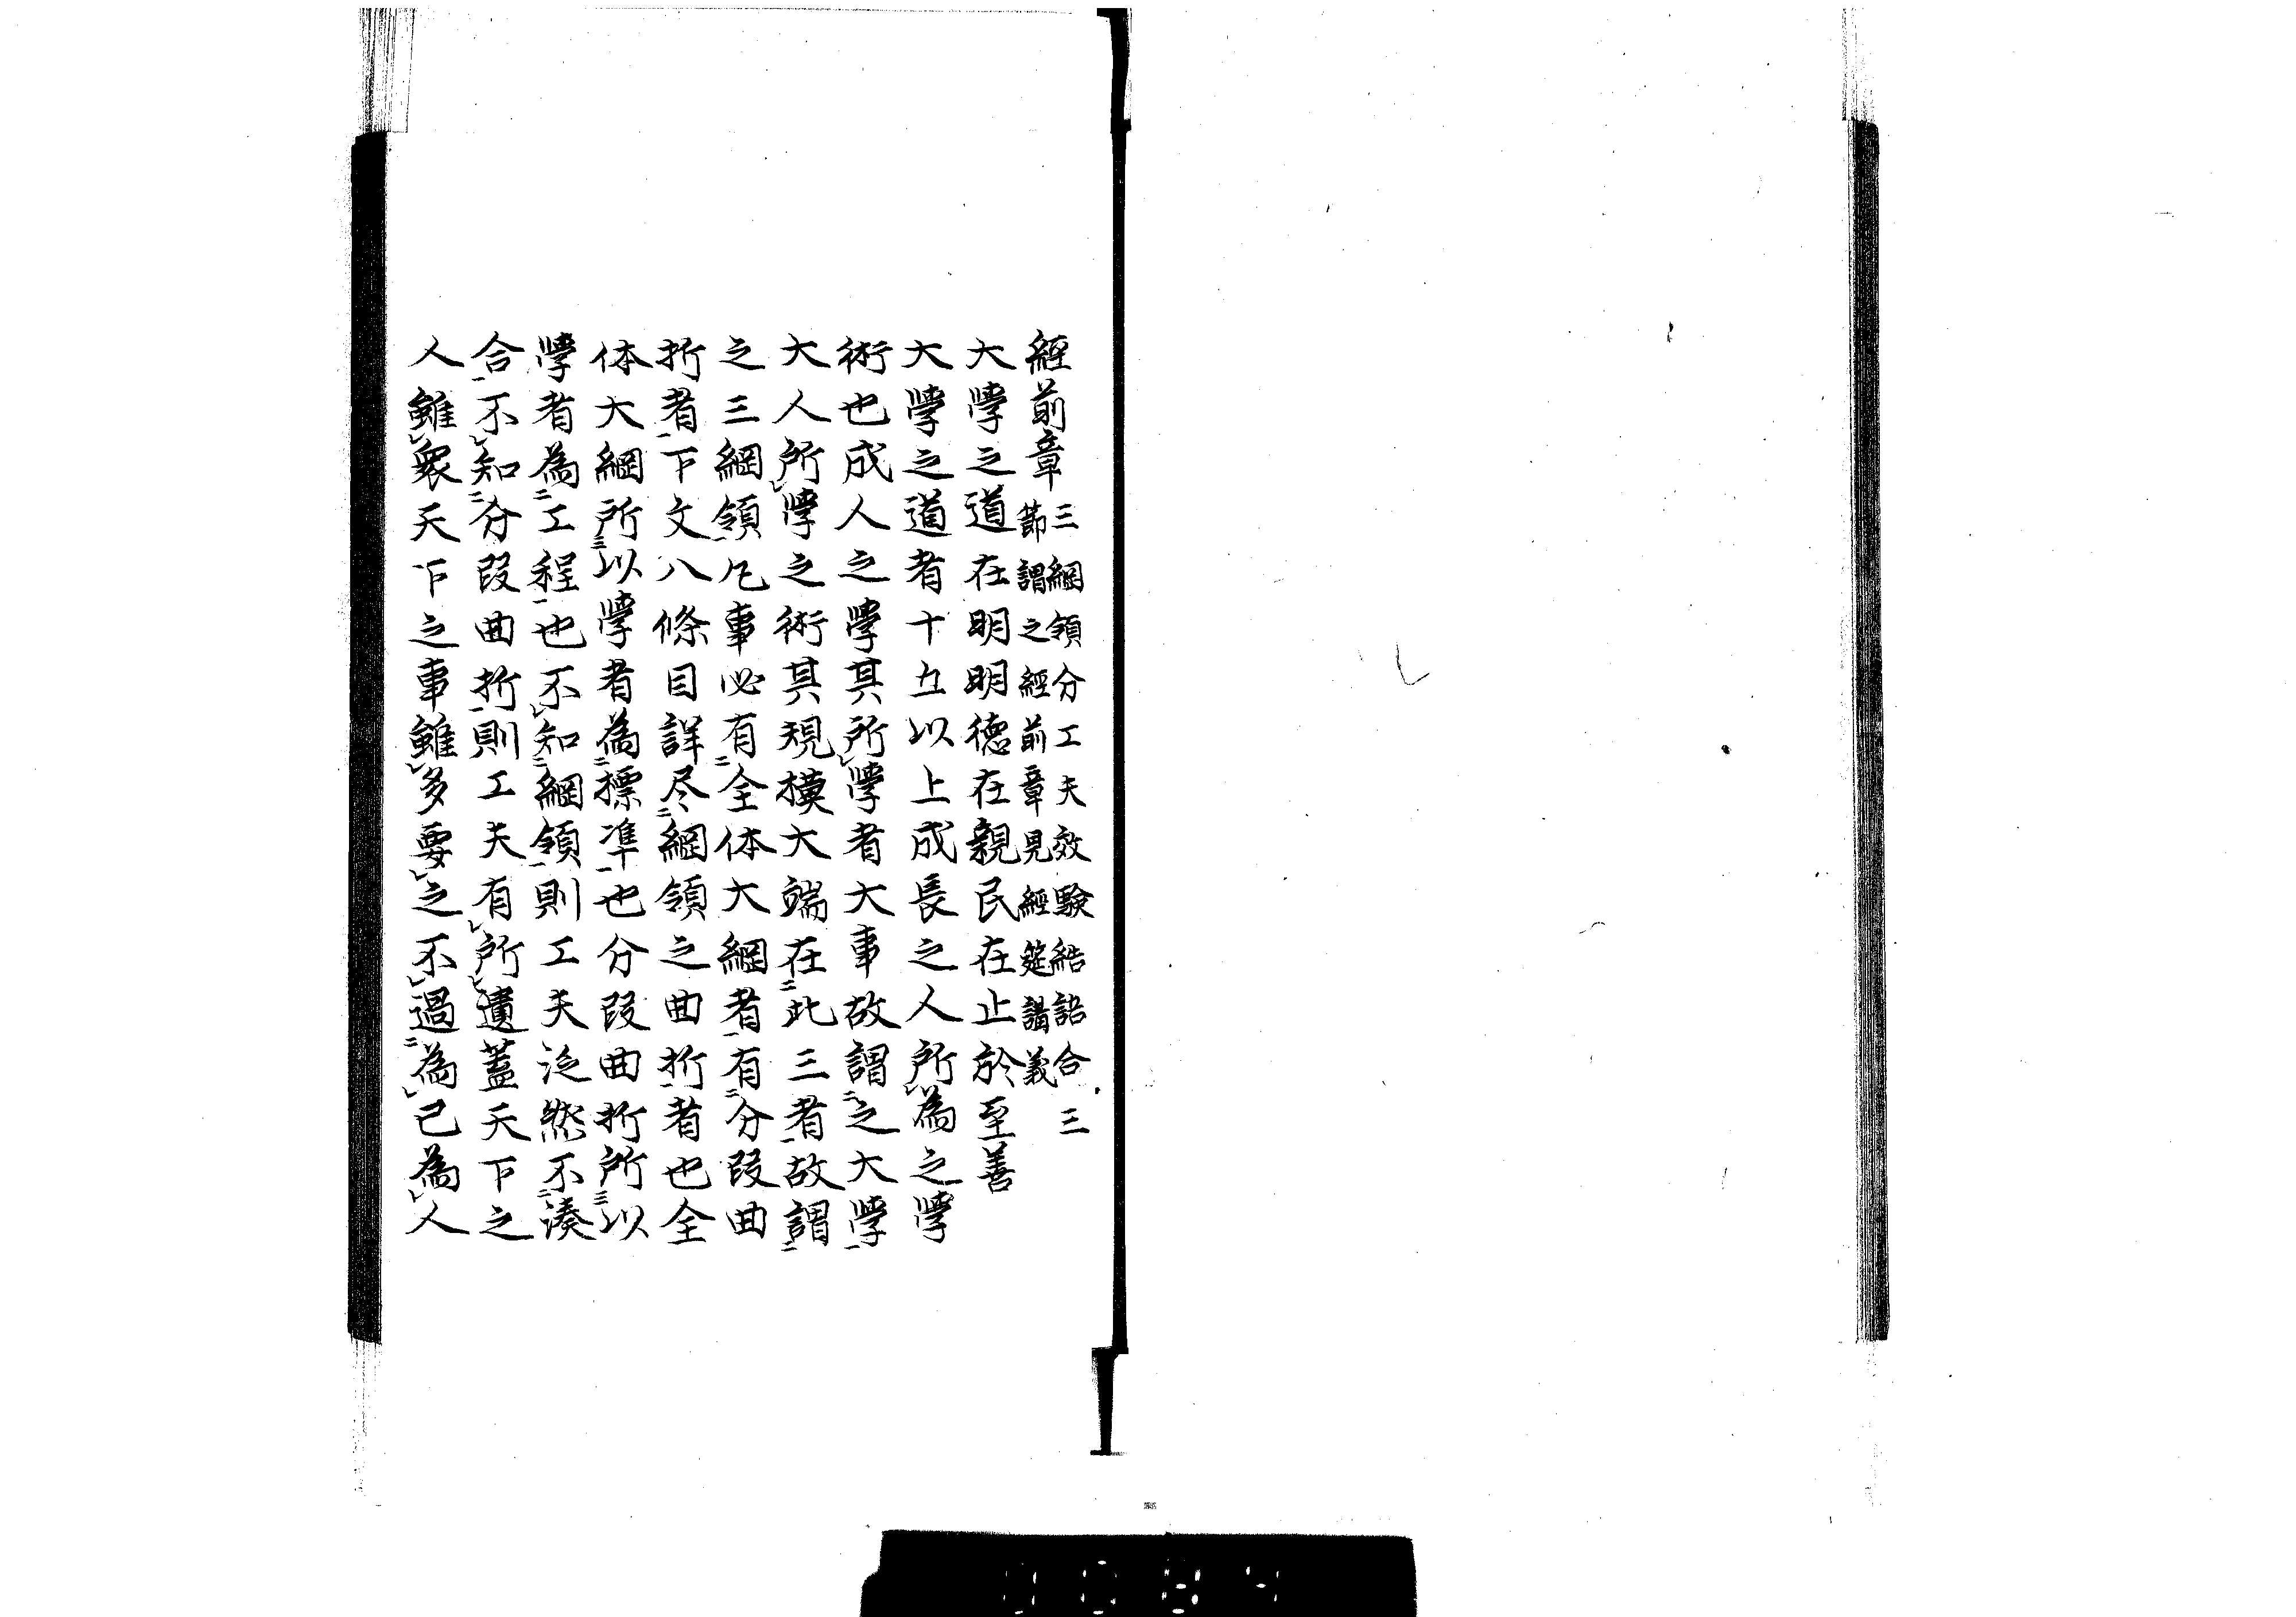 經前章 三綱領分工夫效驗結語合三
節謂之經前章見經筵講義
大學之道在明明德在親民在止於至善
大學之道者十五以上成長之人所為之學
術也成人之學其所學者大事故謂之大學
大人所學之術其規模大端在此三者故謂
之三綱領凡事必有全体大綱者有分段曲
折者下文八條目詳尽綱領之曲折者也全
体大綱所以學者為標準也分段曲折所以
學者為工程也不知綱領則工夫泛然不湊
合不知分段曲折則工夫有所遺蓋天下之
人雖衆天下之事雖多要之不過為己為人